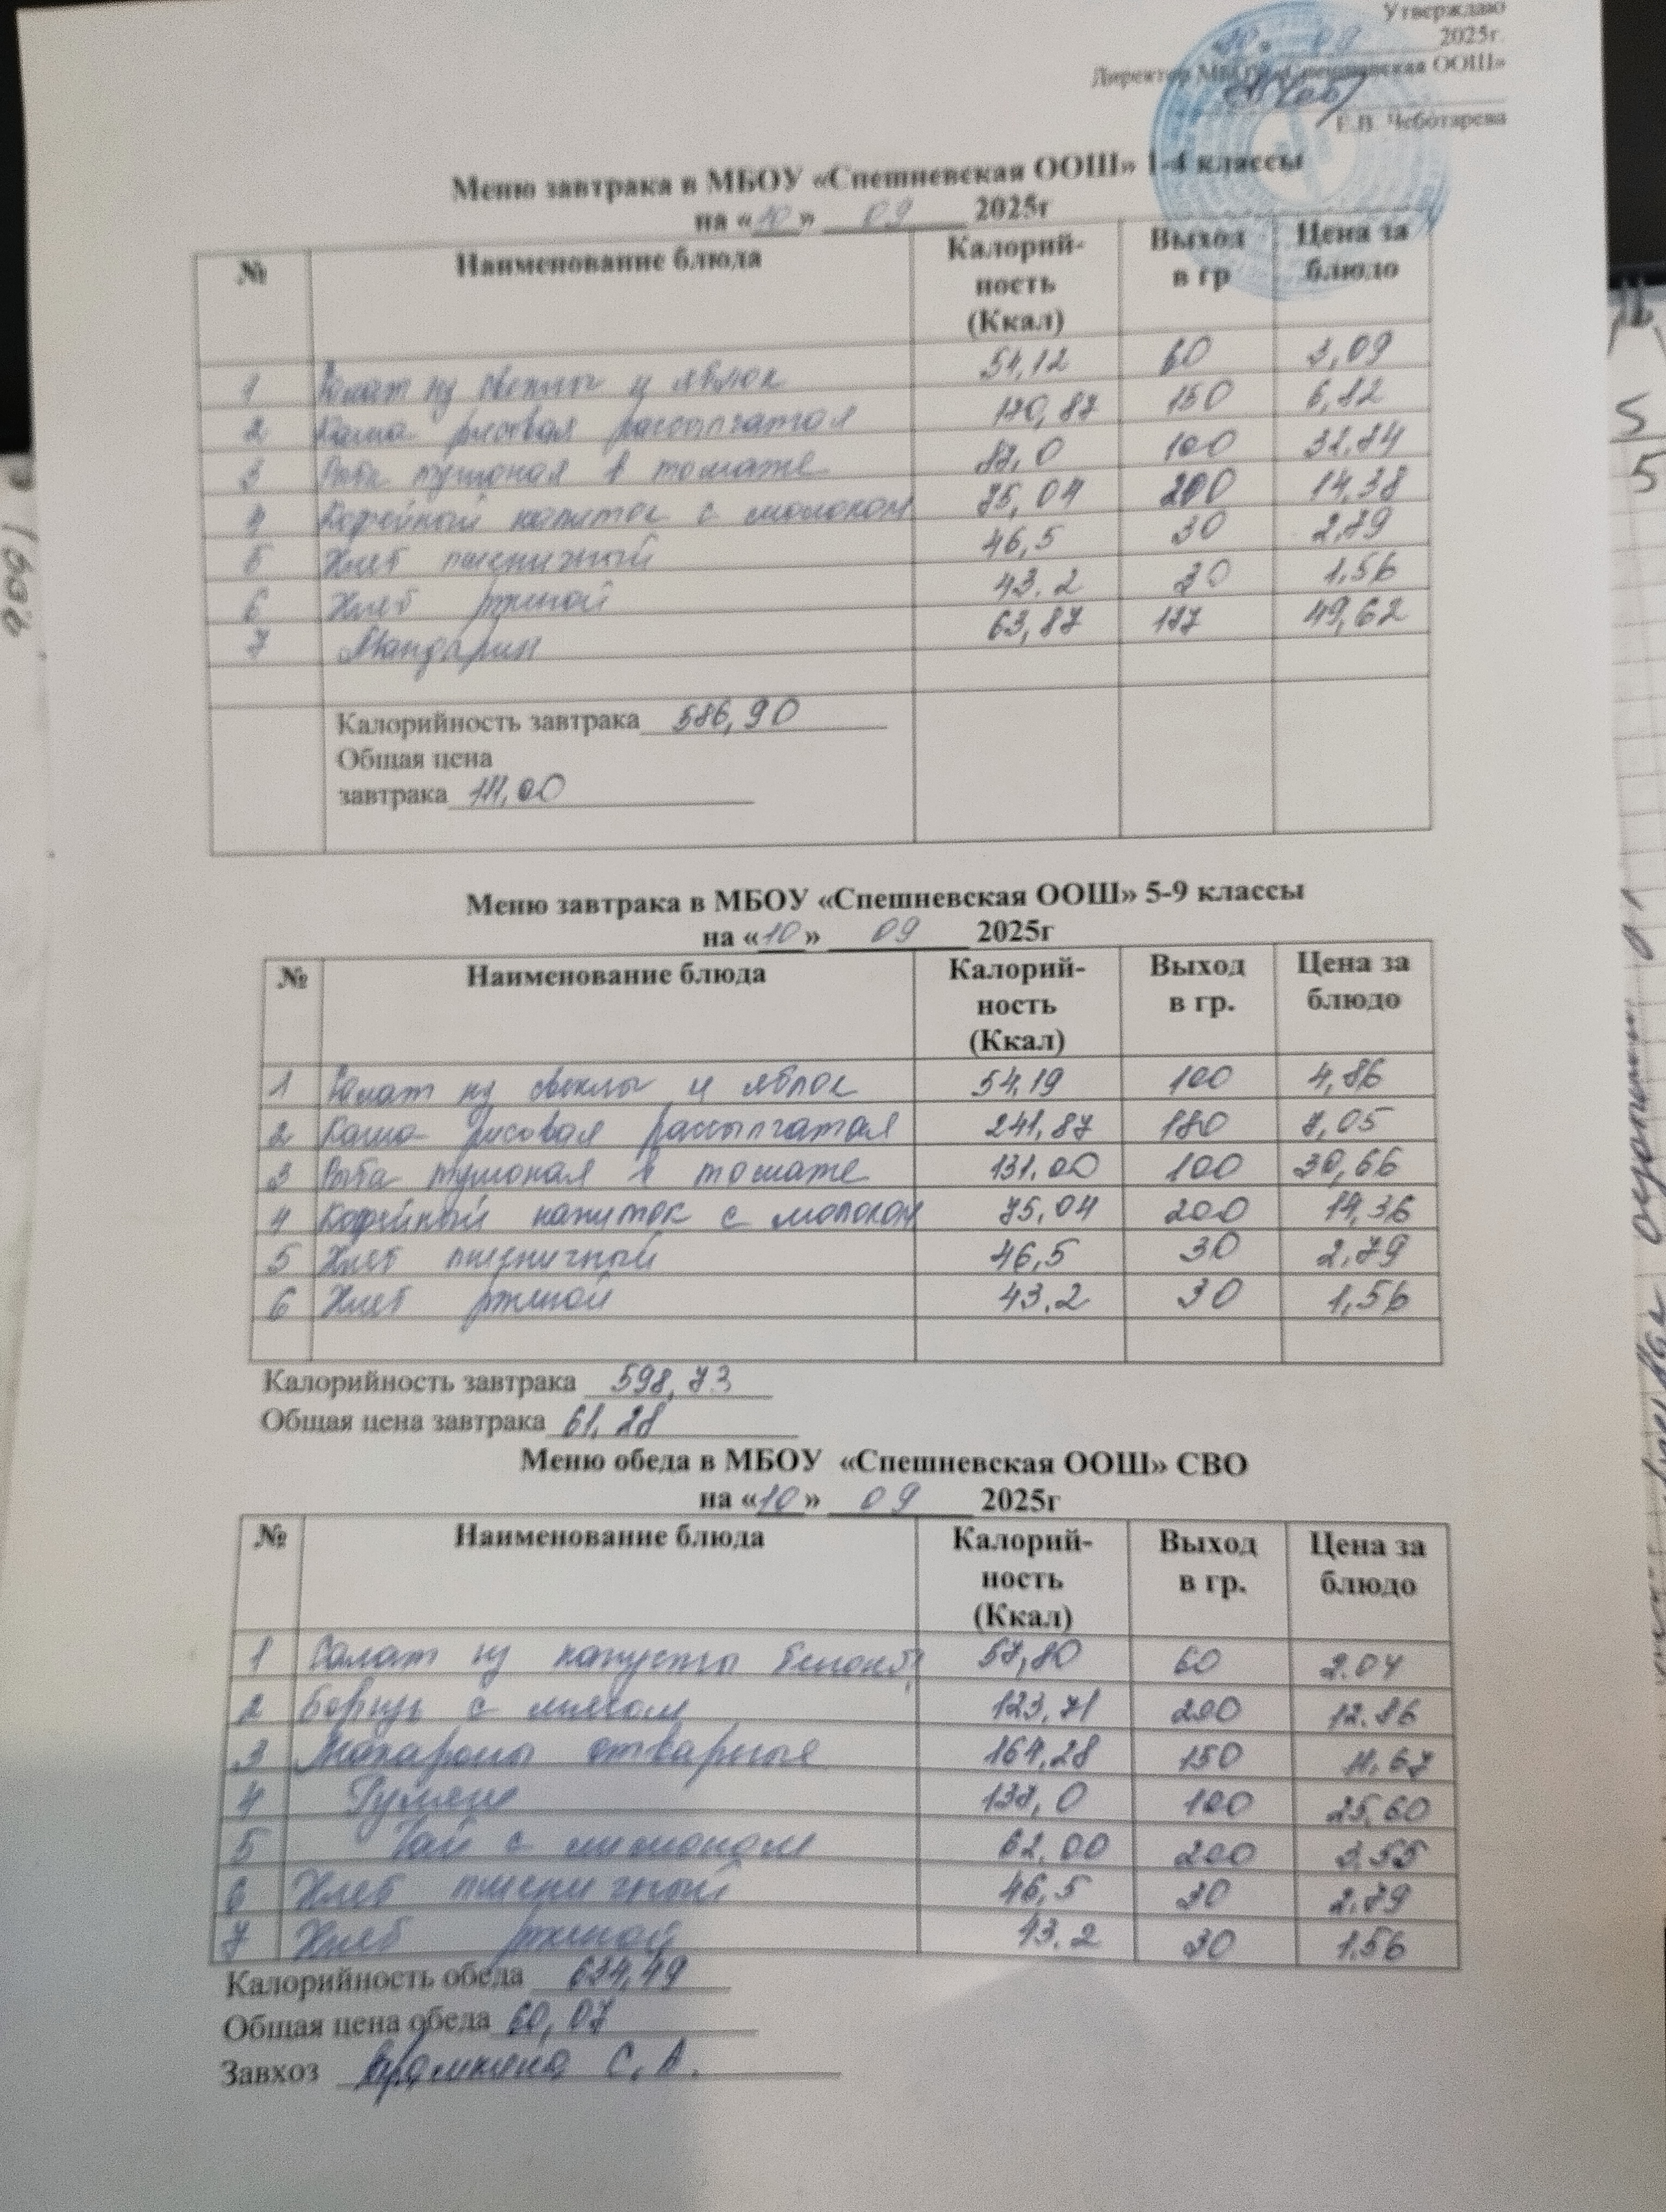 Утверждаю
2025г.
Директор МБОУ «Спешневская ООШ»
Е.В. Чеботарева
Меню завтрака в МБОУ «Спешневская ООШ» 1-4 классы
на «10» 09 2025г
№ Наименование блюда Калорий-ность (Ккал) Выход в гр Цена за блюдо
1 Салат из свеклы и яблок 51,12 60 3,09
2 Каша рисовая рассыпчатая 150
3 Рыба тушоная в томате 100
4 Кофейный напиток с молоком 75,04 200 14,38
5 Хлеб пшеничный 46,5 30 2,79
6 Хлеб ржаной 43.2 30 1,56
7 Мандарин 63,87 49,62
Калорийность завтрака 586,90
Общая цена
завтрака 111,00
Меню завтрака в МБОУ «Спешневская ООШ» 5-9 классы
на «10» 09 2025г
№ Наименование блюда Калорий-ность (Ккал) Выход в гр. Цена за блюдо
1 Салат из свеклы и яблок 54,19 100 4,86
2 Каша рисовая рассыпчатая 241,87 180 7,05
3 Рыба тушоная в томате 131,00 100 30,66
4 Кофейный напиток с молоком 75,04 200 14,36
5 Хлеб пшеничный 46,5 30 2,79
6 Хлеб ржаной 43,2 30 1,56
Калорийность завтрака 598,73
Общая цена завтрака 61,28
Меню обеда в МБОУ «Спешневская ООШ» СВО
на «10» 09 2025г
№ Наименование блюда Калорий-ность (Ккал) Выход в гр. Цена за блюдо
1 Салат из капусты 57,80 60 2.04
2 Борщ с мясом 123,71 200 12.86
3 Макароны отварные 164,28 150 11,67
4 Гуляш 137,0 100 25,60
5 Чай с лимоном 62,00 200 3,55
6 Хлеб пшеничный 46,5 30 2,79
7 Хлеб ржаной 43.2 30 1.56
Калорийность обеда 634,49
Общая цена обеда 60,07
Завхоз С. А.